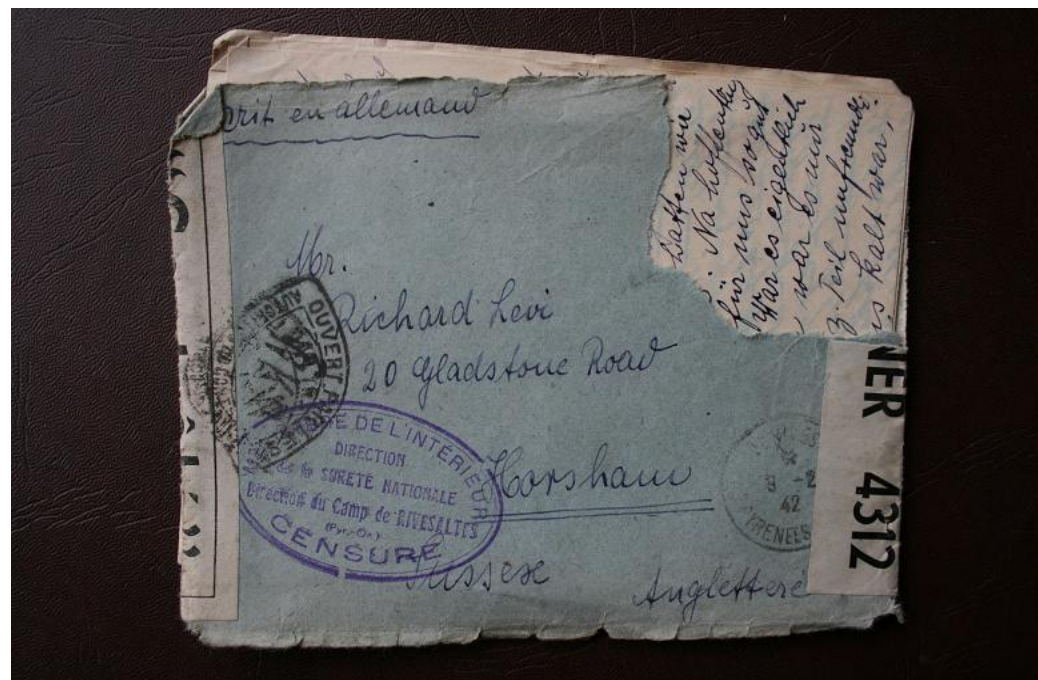 écrit en allemand
Mr.
Richard Levi
20 Gladstone Road
Horsham
Sussex
Angleterre
OUVERT
DE L'INTÉRIEUR
DIRECTION
de la SURETÉ NATIONALE
Direction du Camp de RIVESALTES
(Pyr.-Or.)
CENSURE
9 -2
42
PYRENEES
NER 4312
hatten wir
Na hoffentlich
für uns so gut
War es eigentlich
war es nur
z. Teil unfreundl.
es kalt war,